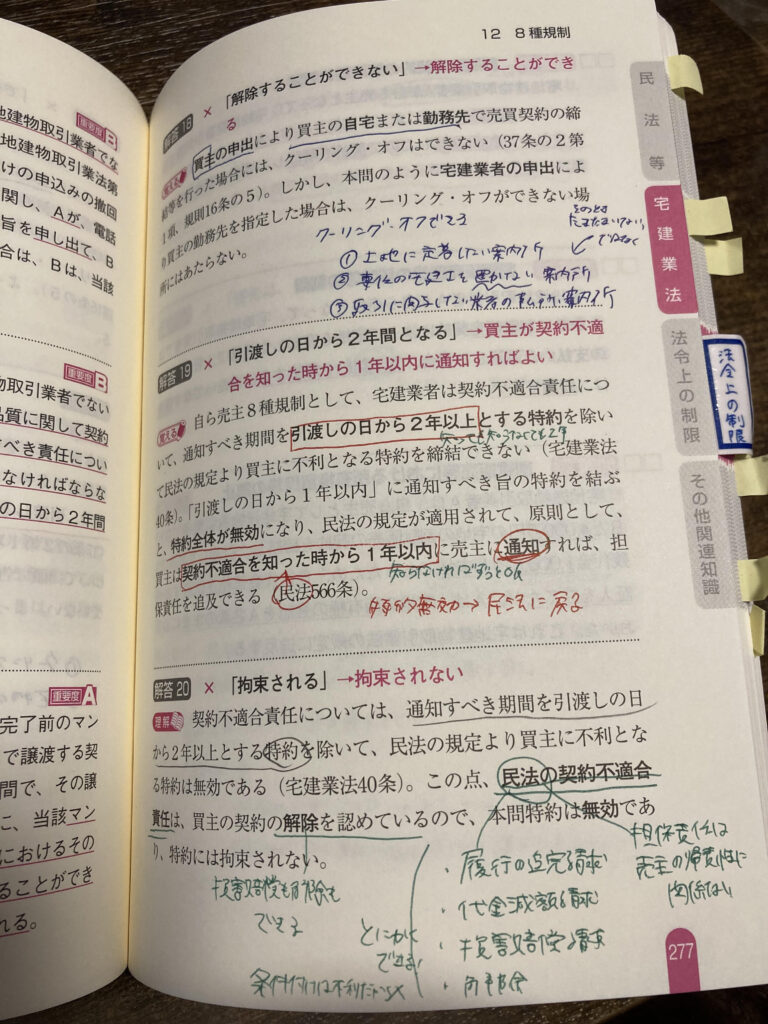 12 8種規制
解答18 × 「解除することができない」→解除することができ
る
覚える 買主の申出により買主の自宅または勤務先で売買契約の締
結等を行った場合には、クーリング・オフはできない（37条の2第
1項、規則16条の5）。しかし、本問のように宅建業者の申出によ
り買主の勤務先を指定した場合は、クーリング・オフができない場
所にはあたらない。
クーリング・オフできる
① 土地に定着しない案内所
② 専任の宅建士を置かない案内所
解答19 × 「引渡しの日から2年間となる」→買主が契約不適
合を知った時から1年以内に通知すればよい
覚える 自ら売主8種規制として、宅建業者は契約不適合責任につ
いて、通知すべき期間を引渡しの日から2年以上とする特約を除い
て民法の規定より買主に不利となる特約を締結できない（宅建業法
40条）。「引渡しの日から1年以内」に通知すべき旨の特約を結ぶ
と、特約全体が無効になり、民法の規定が適用されて、原則として、
買主は契約不適合を知った時から1年以内に売主に通知すれば、担
保責任を追及できる（民法566条）。
特約無効→民法に戻る
解答20 × 「拘束される」→拘束されない
理解 契約不適合責任については、通知すべき期間を引渡しの日
から2年以上とする特約を除いて、民法の規定より買主に不利とな
る特約は無効である（宅建業法40条）。この点、民法の契約不適合
責任は、買主の契約の解除を認めているので、本問特約は無効であ
り、特約には拘束されない。
損害賠償も解除も
できる
とにかく
できる
・履行の追完請求
・代金減額請求
・損害賠償請求
・解除
担保責任は
売主の帰責性に
関係ない
277
民法等
宅建業法
法令上の制限
その他関連知識
法令上の制限
重要度B
地建物取引業者でな
地建物取引業法第
けの申込みの撤回
関し、Aが、電話
旨を申し出て、B
合は、Bは、当該
重要度B
物取引業者でない
品質に関して契約
すべき責任につい
しなければならな
の日から2年間
重要度A
完了前のマン
で譲渡する契
間で、その譲
に、当該マン
におけるその
ることができ
れる。